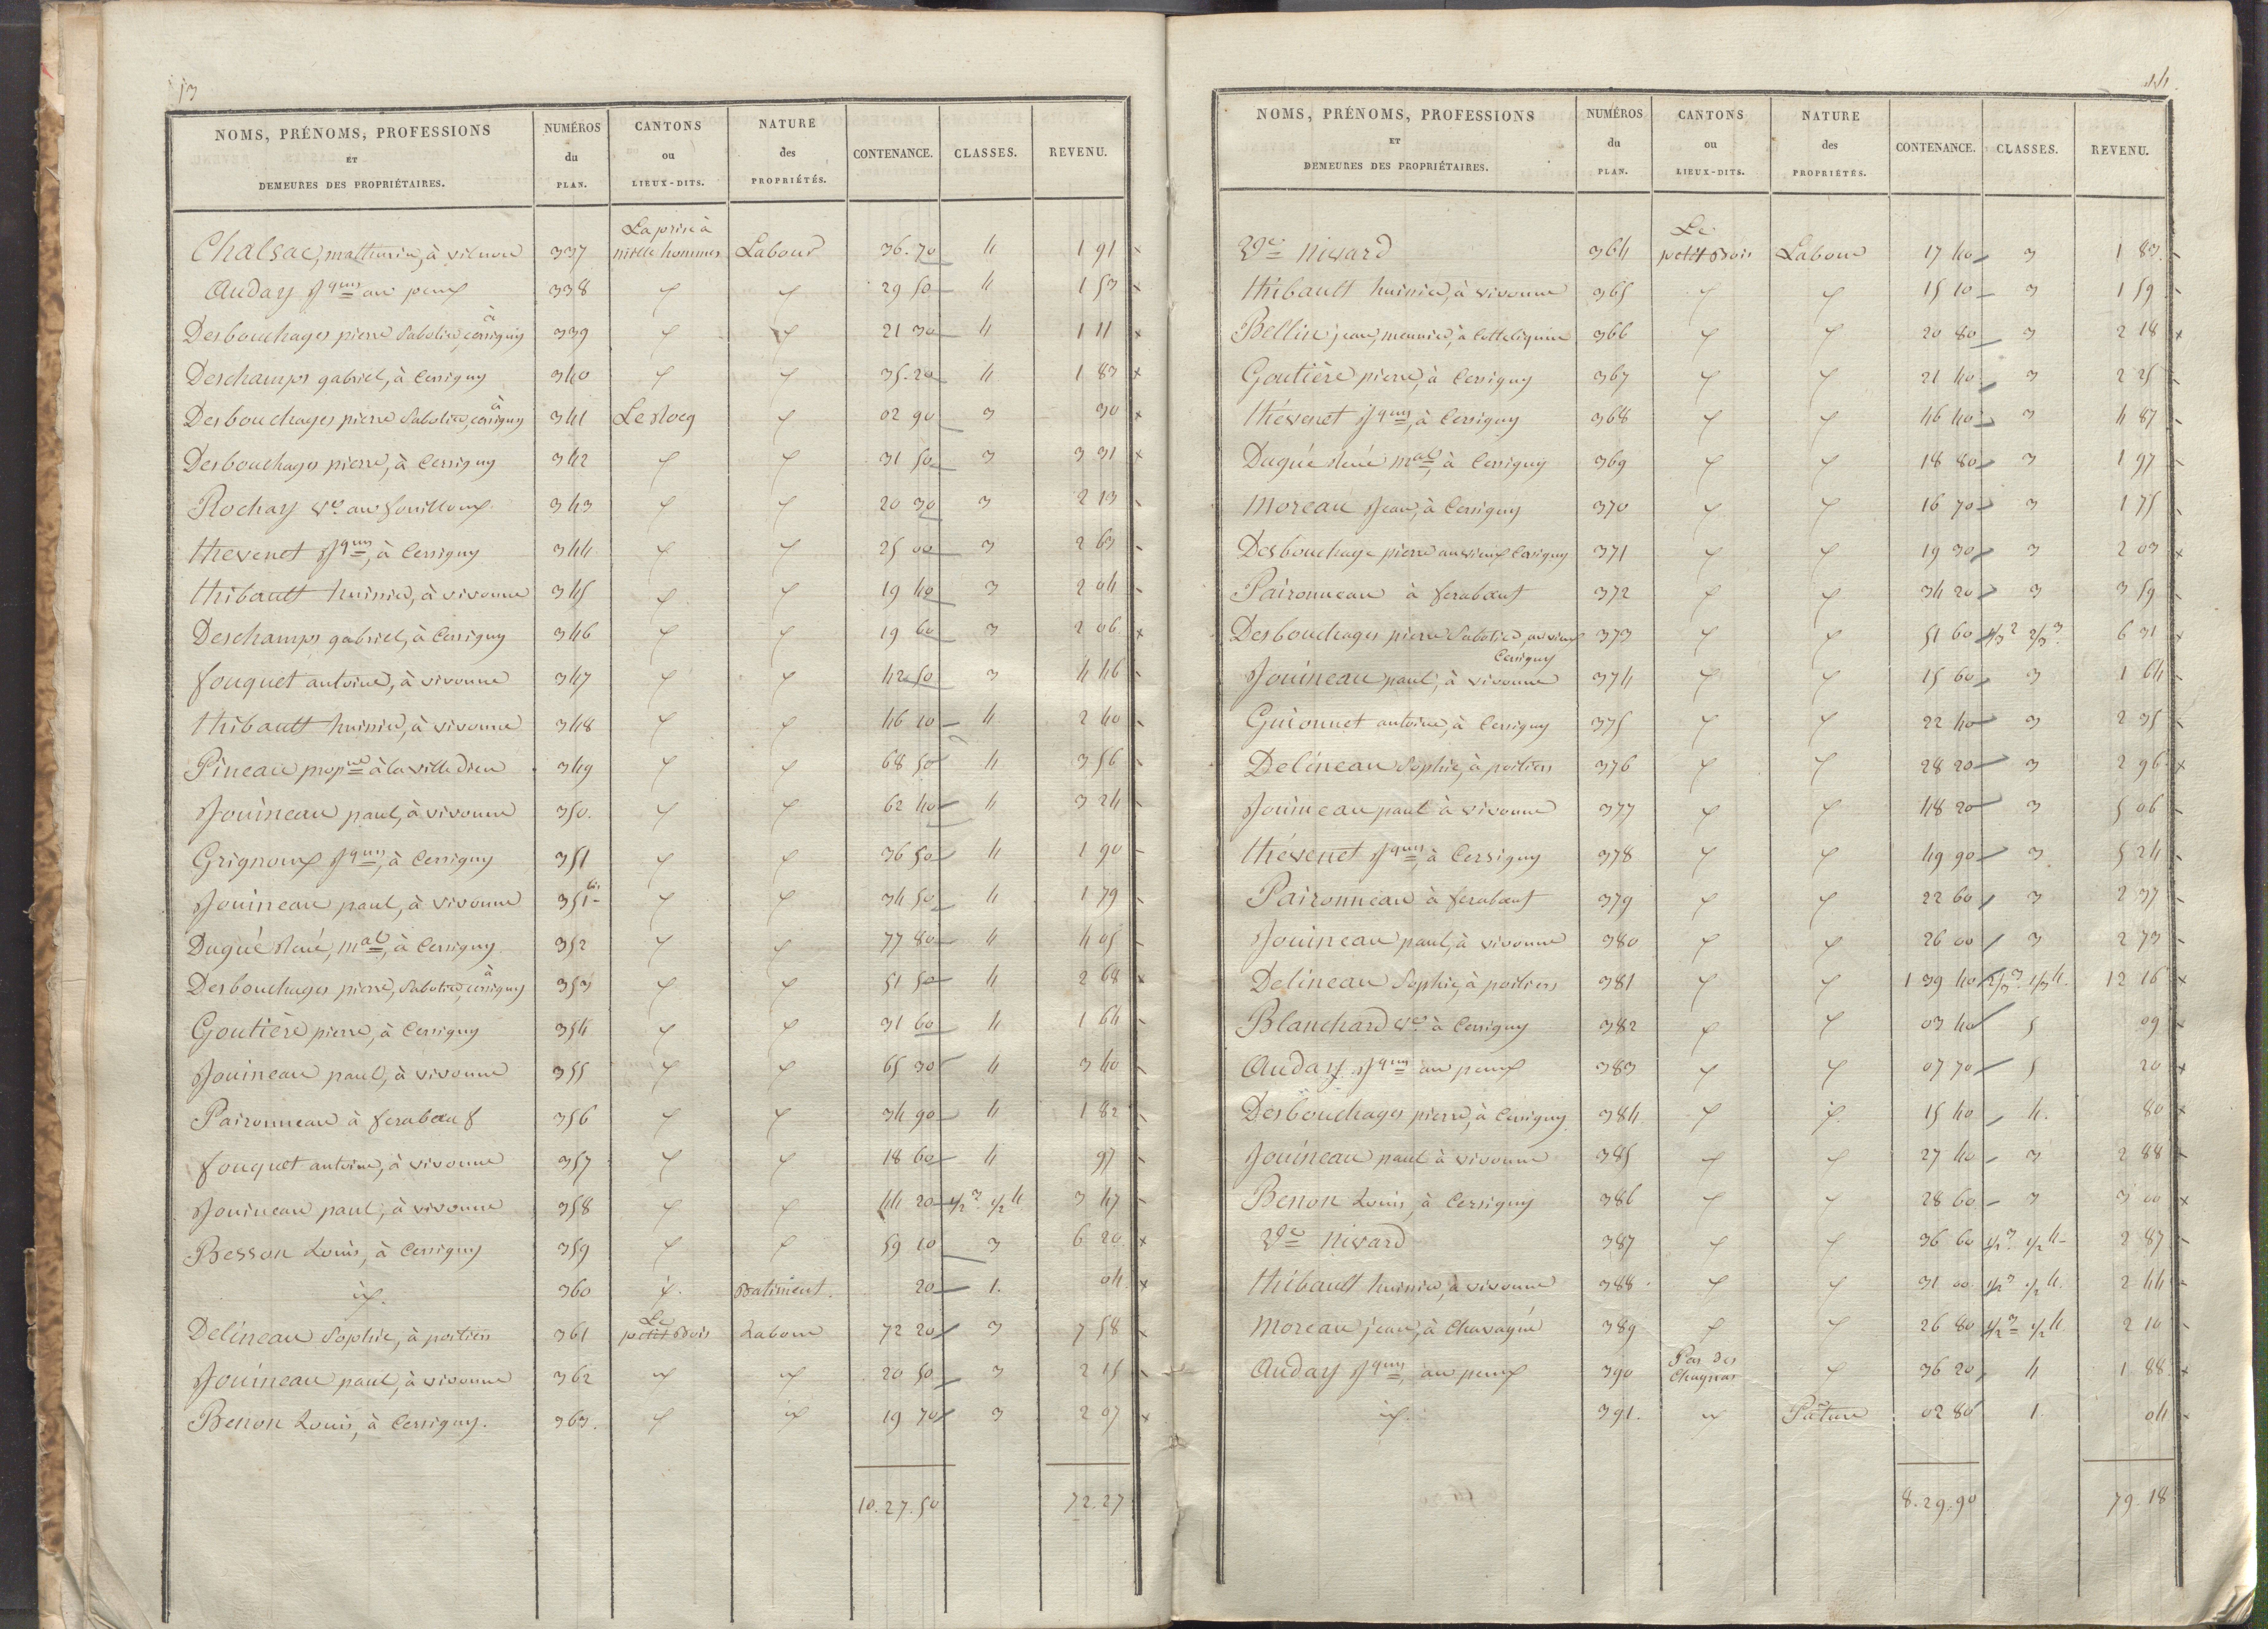 13
NOMS, PRÉNOMS, PROFESSIONS ET DEMEURES DES PROPRIÉTAIRES. NUMÉROS du PLAN. CANTONS ou LIEUX-DITS. NATURE des PROPRIÉTÉS. CONTENANCE. CLASSES. REVENU.
La prise à
Chalsac, mathurin, à vivonne 337 mille hommes Labour 36.70 4 1 91
Auday Jques au peux 338 " " 29 50 4 1 53
Desbouchages pierre Sabotier, à cersigny 339 " " 21 30 4 1 11
Deschamps gabriel, à Cersigny 340 " " 35.20 4 1 83
Desbouchages pierre Sabotier, à cersigny 341 Le Rocq " 02 90 3 30
Desbouchages pierre, à Cersigny 342 " " 31 50 3 3 31
Rochay ve au fouilloux 343 " " 20 30 3 2 13
thevenet Jques, à Cersigny 344 " " 25 00 3 2 63
thibault huissier, à vivonne 345 " " 19 40 3 2 04
Deschamps gabriel, à Cersigny 346 " " 19 60 3 2 06
fouquet antoine, à vivonne 347 " " 42 50 3 4 46
thibault huissier, à vivonne 348 " " 46 10 4 2 40
Pineau propre à la ville dieu 349 " " 68 50 4 3 56
Jouineau paul, à vivonne 350. " " 62 40 4 3 24
Grignoux Jques, à Cersigny 351 " " 36 50 4 1 90
Jouineau paul, à vivonne 351 bis " " 34 50 4 1 79
Dugué René, mal, à Cersigny 352 " " 77 80 4 4 05
Desbouchages pierre, Sabotier, à cersigny 353 " " 51 50 4 2 68
Goutière pierre, à Cersigny 354 " " 31 60 4 1 64
Jouineau paul, à vivonne 355 " " 65 30 4 3 40
Paironneau à ferabœuf 356 " " 34 90 4 1 82
fouquet antoine, à vivonne 357 " " 18 60 4 97
Jouineau paul, à vivonne 358 " " 44 20 1/2 3 1/2 4 3 47
Besson Louis, à Cersigny 359 " " 59 10 3 6 20
id. 360 id. Batiment. 20 1. 04
Delineau Sophie, à poitiers 361 Le petit Bois Labour 72 20 3 7 58
Jouineau paul, à vivonne 362 " " 20 50 3 2 15
Benon Louis, à Cersigny. 363. " " 19 70 3 2 07
10.27.50 72.27
14.
NOMS, PRÉNOMS, PROFESSIONS ET DEMEURES DES PROPRIÉTAIRES. NUMÉROS du PLAN. CANTONS ou LIEUX-DITS. NATURE des PROPRIÉTÉS. CONTENANCE. CLASSES. REVENU.
Le
nivard 364 petit Bois Labour 17 40 3 1 83
thibault huissier, à vivonne 365 " " 15 10 3 1 59
Bellin jean, meunier, à 366 " " 20 80 3 2 18
Goutière pierre, à Cersigny 367 " " 21 40 3 2 25
thévenet Jques, à Cersigny 368 " " 46 40 3 4 87
Dugué René mal, à Cersigny 369 " " 18 80 3 1 97
Moreau Jean, à Cersigny 370 " " 16 70 3 1 75
Desbouchage pierre au vieux Cersigny 371 " " 19 30 3 2 03
Paironneau à ferabœuf 372 " " 34 20 3 3 59
Desbouchages pierre Sabotier, au vieux Cersigny 373 " " 51 60 1/3 2 2/3 3 6 31
Jouineau paul, à vivonne 374 " " 15 60 3 1 64
Guionnet antoine, à Cersigny 375 " " 22 40 3 2 35
Delineau Sophie, à poitiers 376 " " 28 20 3 2 96
Jouineau paul à vivonne 377 " " 48 20 3 5 06
thévenet Jques, à Cersigny 378 " " 49 90 3 5 24
Paironneau à ferabœuf 379 " " 22 60 3 2 37
Jouineau paul, à vivonne 380 " " 26 00 3 2 73
Delineau Sophie, à poitiers 381 " " 1 39 40 2/3 3 1/3 4. 12 16
Blanchard ve à Cersigny 382 " " 03 40 5 09
Auday Jques au peux 383 " " 07 70 5 20
Desbouchages pierre, à Cersigny 384 " " 15 40 4. 80
Jouineau paul à vivonne 385 " " 27 40 3 2 88
Benon Louis, à Cersigny 386 " " 28 60 3 3 00
nivard 387 " " 36 60 1/2 3 1/2 4 2 87
thibault huissier, à vivonne 388 " " 31 00 1/2 3 1/2 4. 2 44
Moreau jean, à Chavagné 389 " " 26 80 1/2 3 1/2 4 2 10
Auday Jques, au peux 390 Pas des Chagnas " 36 20 4 1 88
id. 391. " Pature 02 80 1. 04
8.29.90 79.18